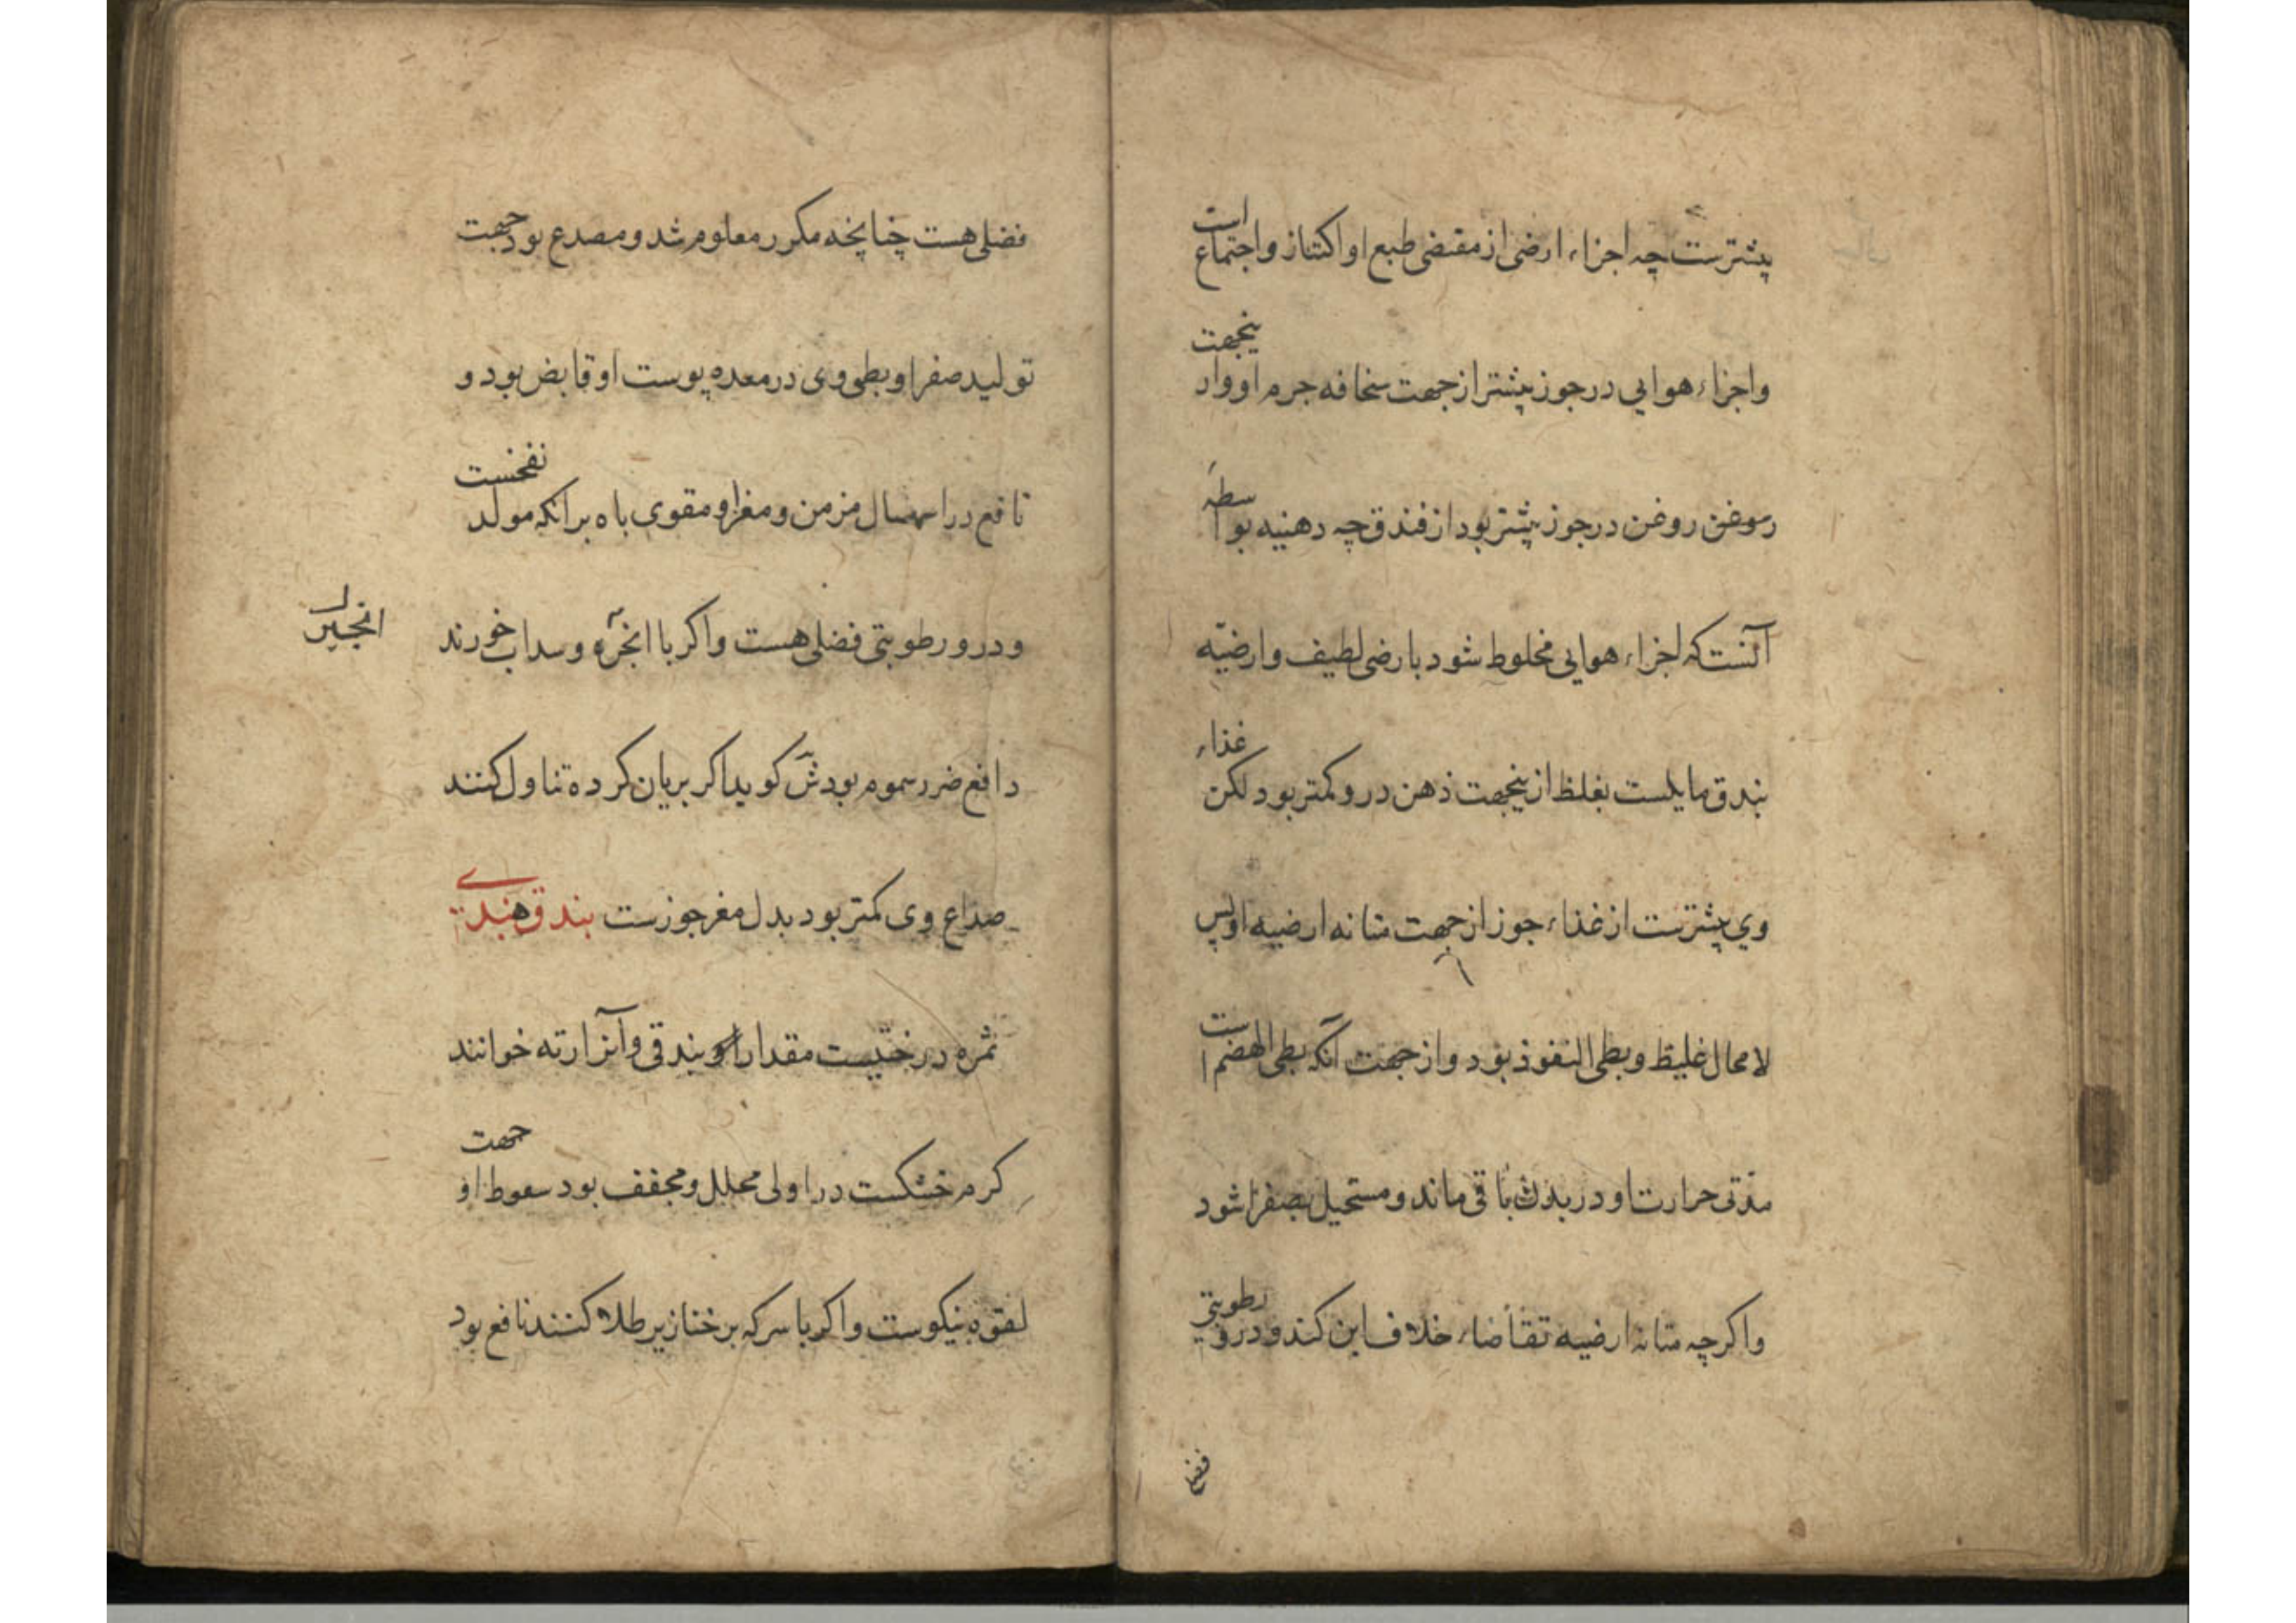 پیشترست چه اجزاء ارضی از مقتضی طبع او اکتناز و اجتماع است
واجزاء هوایی در جوز پیشتر از جهت سخافه جرم او و از ینجهت
روغن در جوز پیشتر بود از فندق چه دهنیه بواسطه
آنست که اجزاء هوایی مخلوط شود بارضی لطیف و ارضیّه
بندق مایلست بغلظ از ینجهت ذهن درو کمتر بود لکن غذاء
وی پیشترست از غذاء جوز از جهت متانه ارضیه او پس
لا محال غلیظ و بطی النفوذ بود و از جهت آنکه بطی الهضم است
مدّتی حرارت او در بدن باقی ماند و مستحیل بصفرا شود
واکرچه متانه ارضیه تقاضاء خلاف این کند و درو رطوبتی
فضلی
فضلی هست چنانچه مکرر معلوم شد و مصدع بود جهت
تولید صفرا و بطوی وی در معده پوست او قابض بود و
نافع در اسهال مزمن و مغز او مقوی باه برانکه مولد نفخست
و درو رطوبتی فضلی هست واکر با انجره و سداب خورند
انجیر
دافع ضرر سموم بود ش کوید اکر بریان کرده تناول کنند
صداع وی کمتر بود بدل مغز جوزست بندق هندی
ثمره درختیست مقدار او بندقی وآنرا رته خوانند
کرم خشکست در اولی محلل و مجفف بود سعوط او جهت
لقوه نیکوست واکر با سرکه بر خنازیر طلا کنند نافع بود